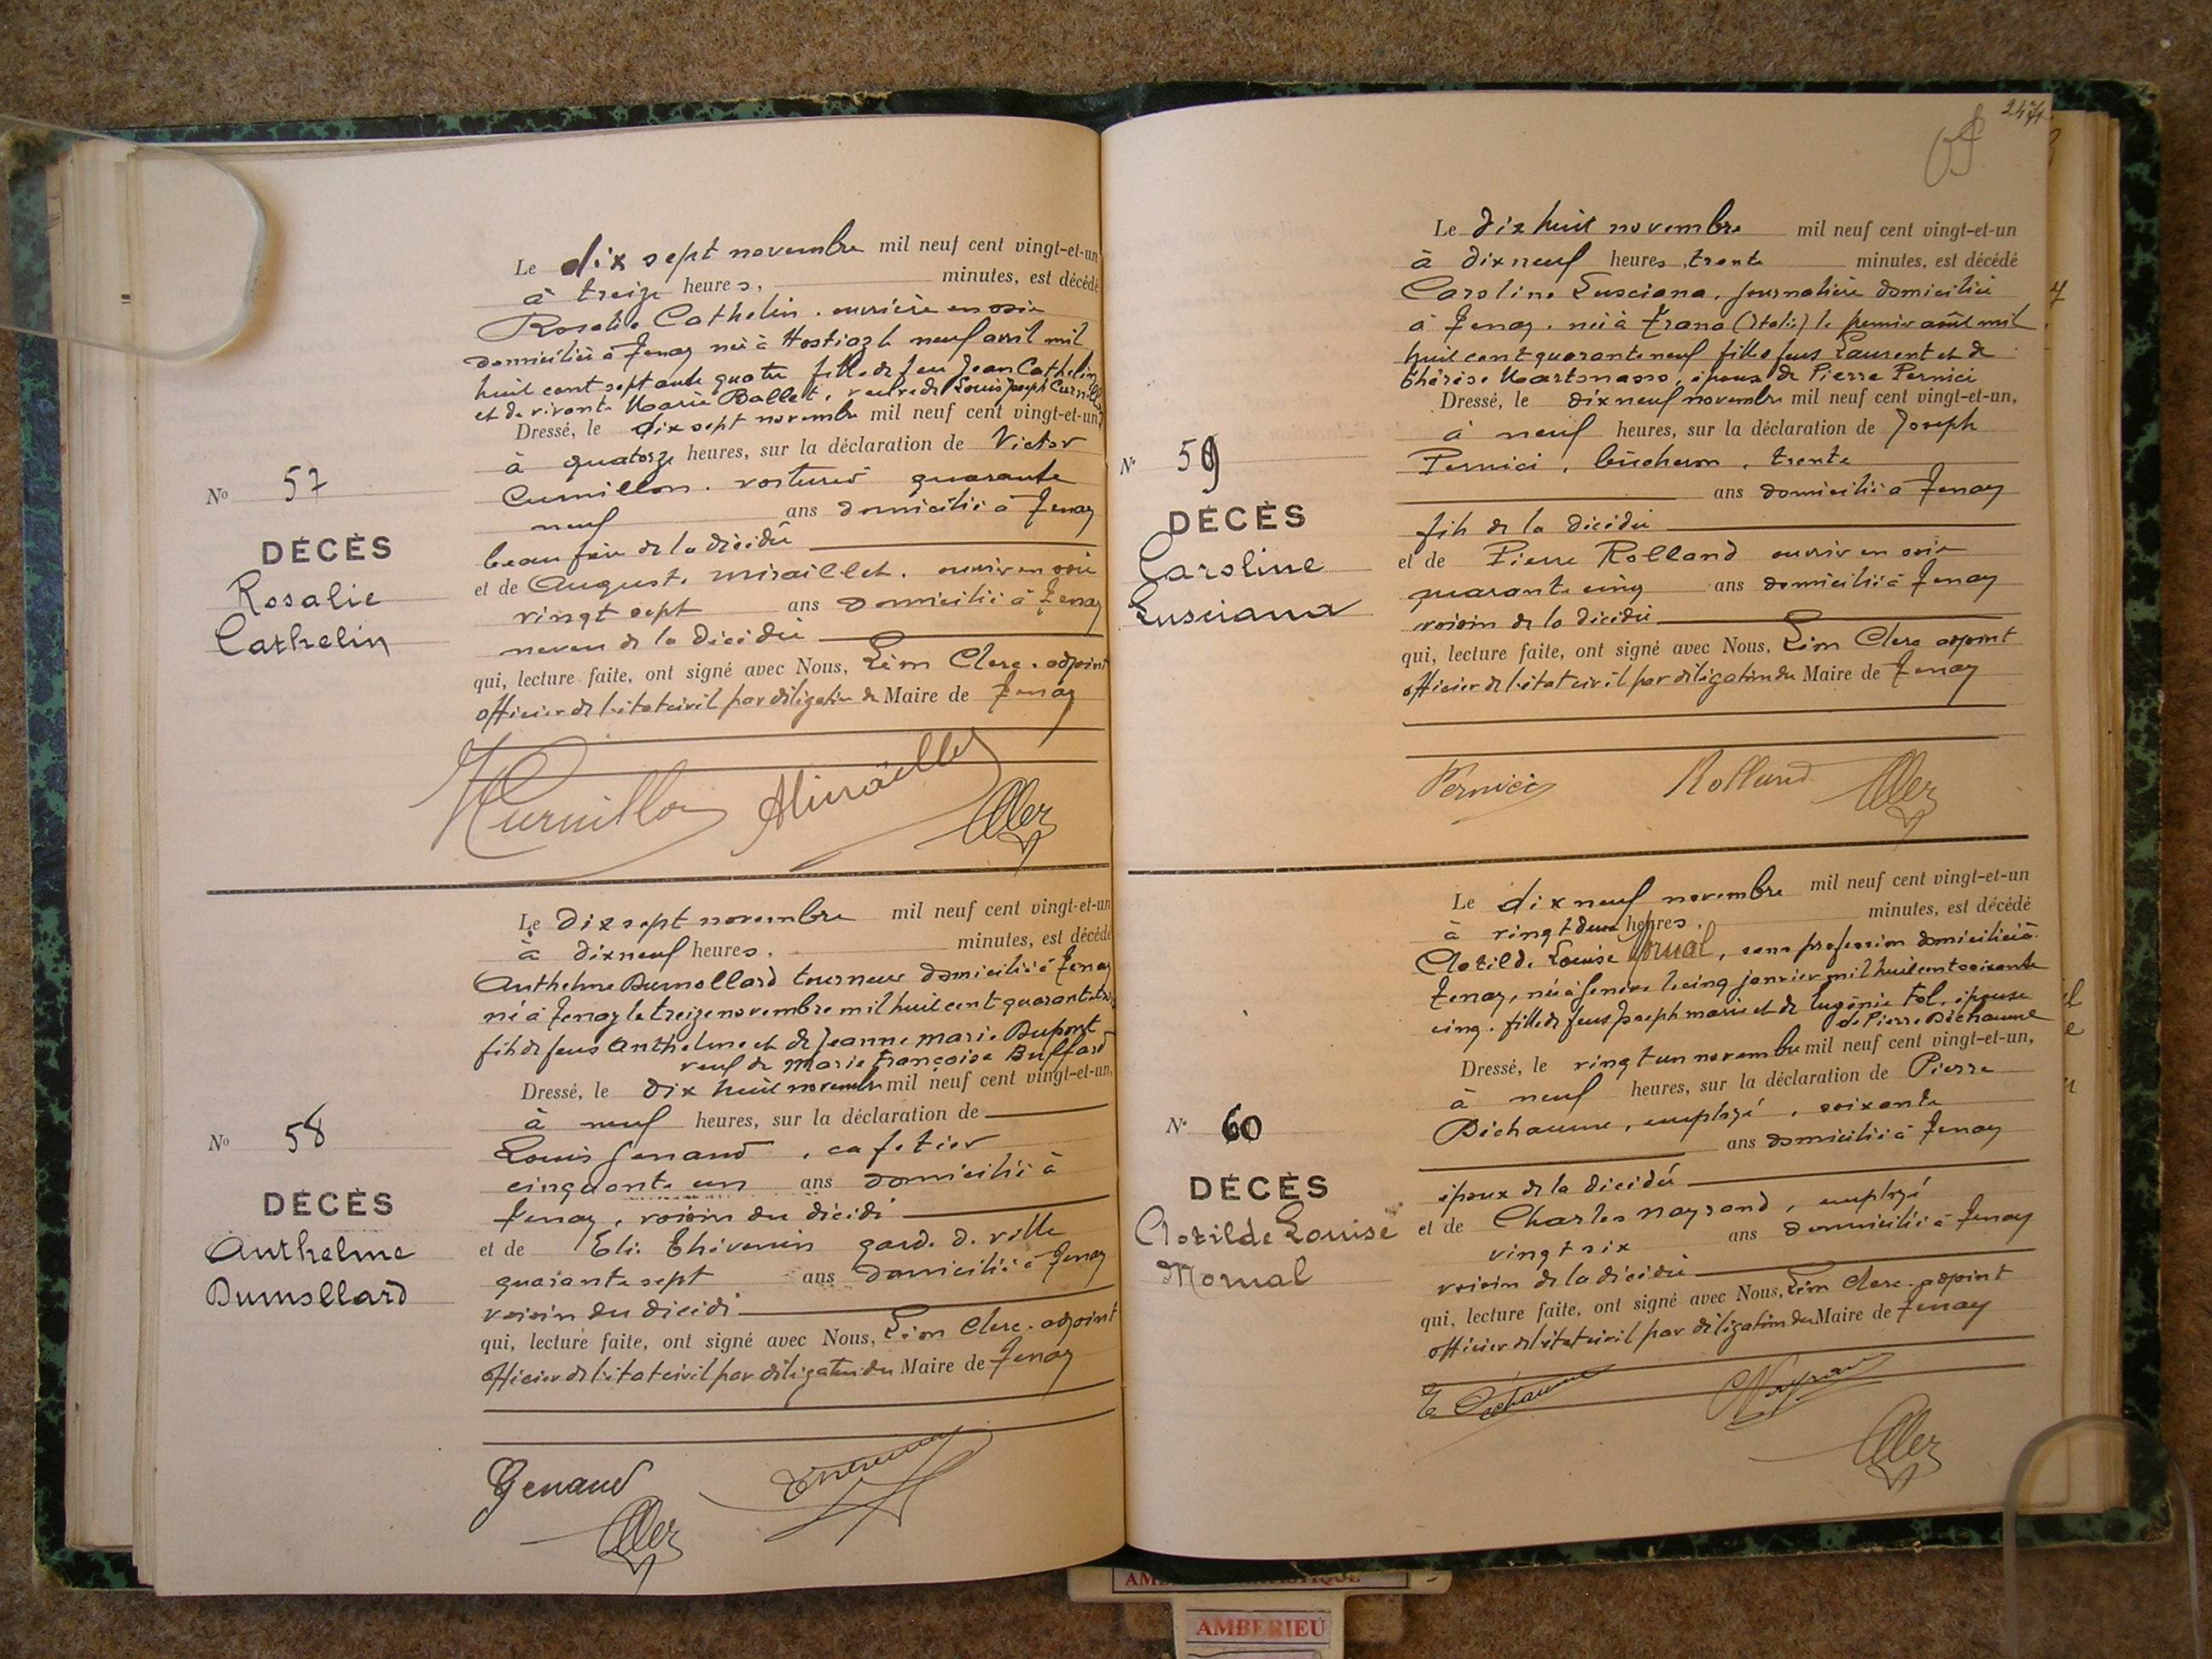 Le dix sept novembre mil neuf cent vingt-et-un
à treize heures, minutes, est décédé
Rosalie Cathelin, ouvrière en soie
domiciliée à Tenay née à Hostiaz le neuf avril mil
huit cent septante quatre fille de feu Jean Cathelin
et de vivante Marie Ballet, veuve de Louis Joseph
Dressé, le dix sept novembre mil neuf cent vingt-et-un,
à quatorze heures, sur la déclaration de Victor
Curnillon, voiturier quarante
neuf ans domicilié à Tenay
beau frère de la décédée
et de Auguste Miraillet, ouvrier en soie
vingt sept ans domicilié à Tenay
neveu de la décédée
qui, lecture faite, ont signé avec Nous, Léon Clerc, adjoint
officier de l'état civil par délégation du Maire de Tenay
No 57
DÉCÈS
Rosalie
Cathelin
Le dix sept novembre mil neuf cent vingt-et-un
à dix neuf heures, minutes, est décédé
Anthelme Dumollard tourneur domicilié à Tenay
né à Tenay le treize novembre mil huit cent quarante
fils de feus Anthelme et de Jeanne Marie Dupont
veuf de Marie Françoise Buffard
Dressé, le dix huit novembre mil neuf cent vingt-et-un,
à neuf heures, sur la déclaration de
Louis Genaud, cafetier
cinquante un ans domicilié à
Tenay, voisin du décédé
et de Elie Thévenin garde de ville
quarante sept ans domicilié à Tenay
voisin du décédé
qui, lecture faite, ont signé avec Nous, Léon Clerc, adjoint
officier de l'état civil par délégation du Maire de Tenay
Genaud
No 58
DÉCÈS
Anthelme
Dumollard
247
Le dix huit novembre mil neuf cent vingt-et-un
à dix neuf heures, trente minutes, est décédé
Caroline Lusciana, journalière domiciliée
à Tenay, née à Trana (Italie) le premier août mil
huit cent quarante neuf fille de feus Laurent et de
Thérèse épouse de Pierre Pernici
Dressé, le dix neuf novembre mil neuf cent vingt-et-un,
à neuf heures, sur la déclaration de Joseph
Pernici, bûcheron, trente
ans domicilié à Tenay
fils de la décédée
et de Pierre Rolland ouvrier en soie
quarante cinq ans domicilié à Tenay
voisin de la décédée
qui, lecture faite, ont signé avec Nous, Léon Clerc adjoint
officier de l'état civil par délégation du Maire de Tenay
Pernici Rolland
No 59
DÉCÈS
Caroline
Lusciana
Le dix neuf novembre mil neuf cent vingt-et-un
à vingt deux heures, minutes, est décédé
Clotilde Louise Mornal, sans profession domiciliée à
Tenay, née à Genève le cinq janvier mil huit cent soixante
cinq, fille de feus Joseph Marie et de Eugénie Fol, épouse
de Pierre Déchaume
Dressé, le vingt un novembre mil neuf cent vingt-et-un,
à neuf heures, sur la déclaration de Pierre
Déchaume, employé, soixante
ans domicilié à Tenay
époux de la décédée
et de Charles Nayrand, employé
vingt six ans domicilié à Tenay
voisin de la décédée
qui, lecture faite, ont signé avec Nous, Léon Clerc, adjoint
officier de l'état civil par délégation du Maire de Tenay
No 60
DÉCÈS
Clotilde Louise
Mornal
AMBERIEU